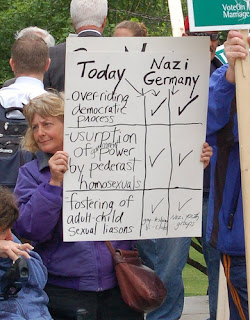 Vote on
Marriage
Today
Nazi
Germany
overriding
democratic
process
usurption
of power
by pederast
homosexuals
fostering of
adult-child
sexual liasons
Nazi youth
groups